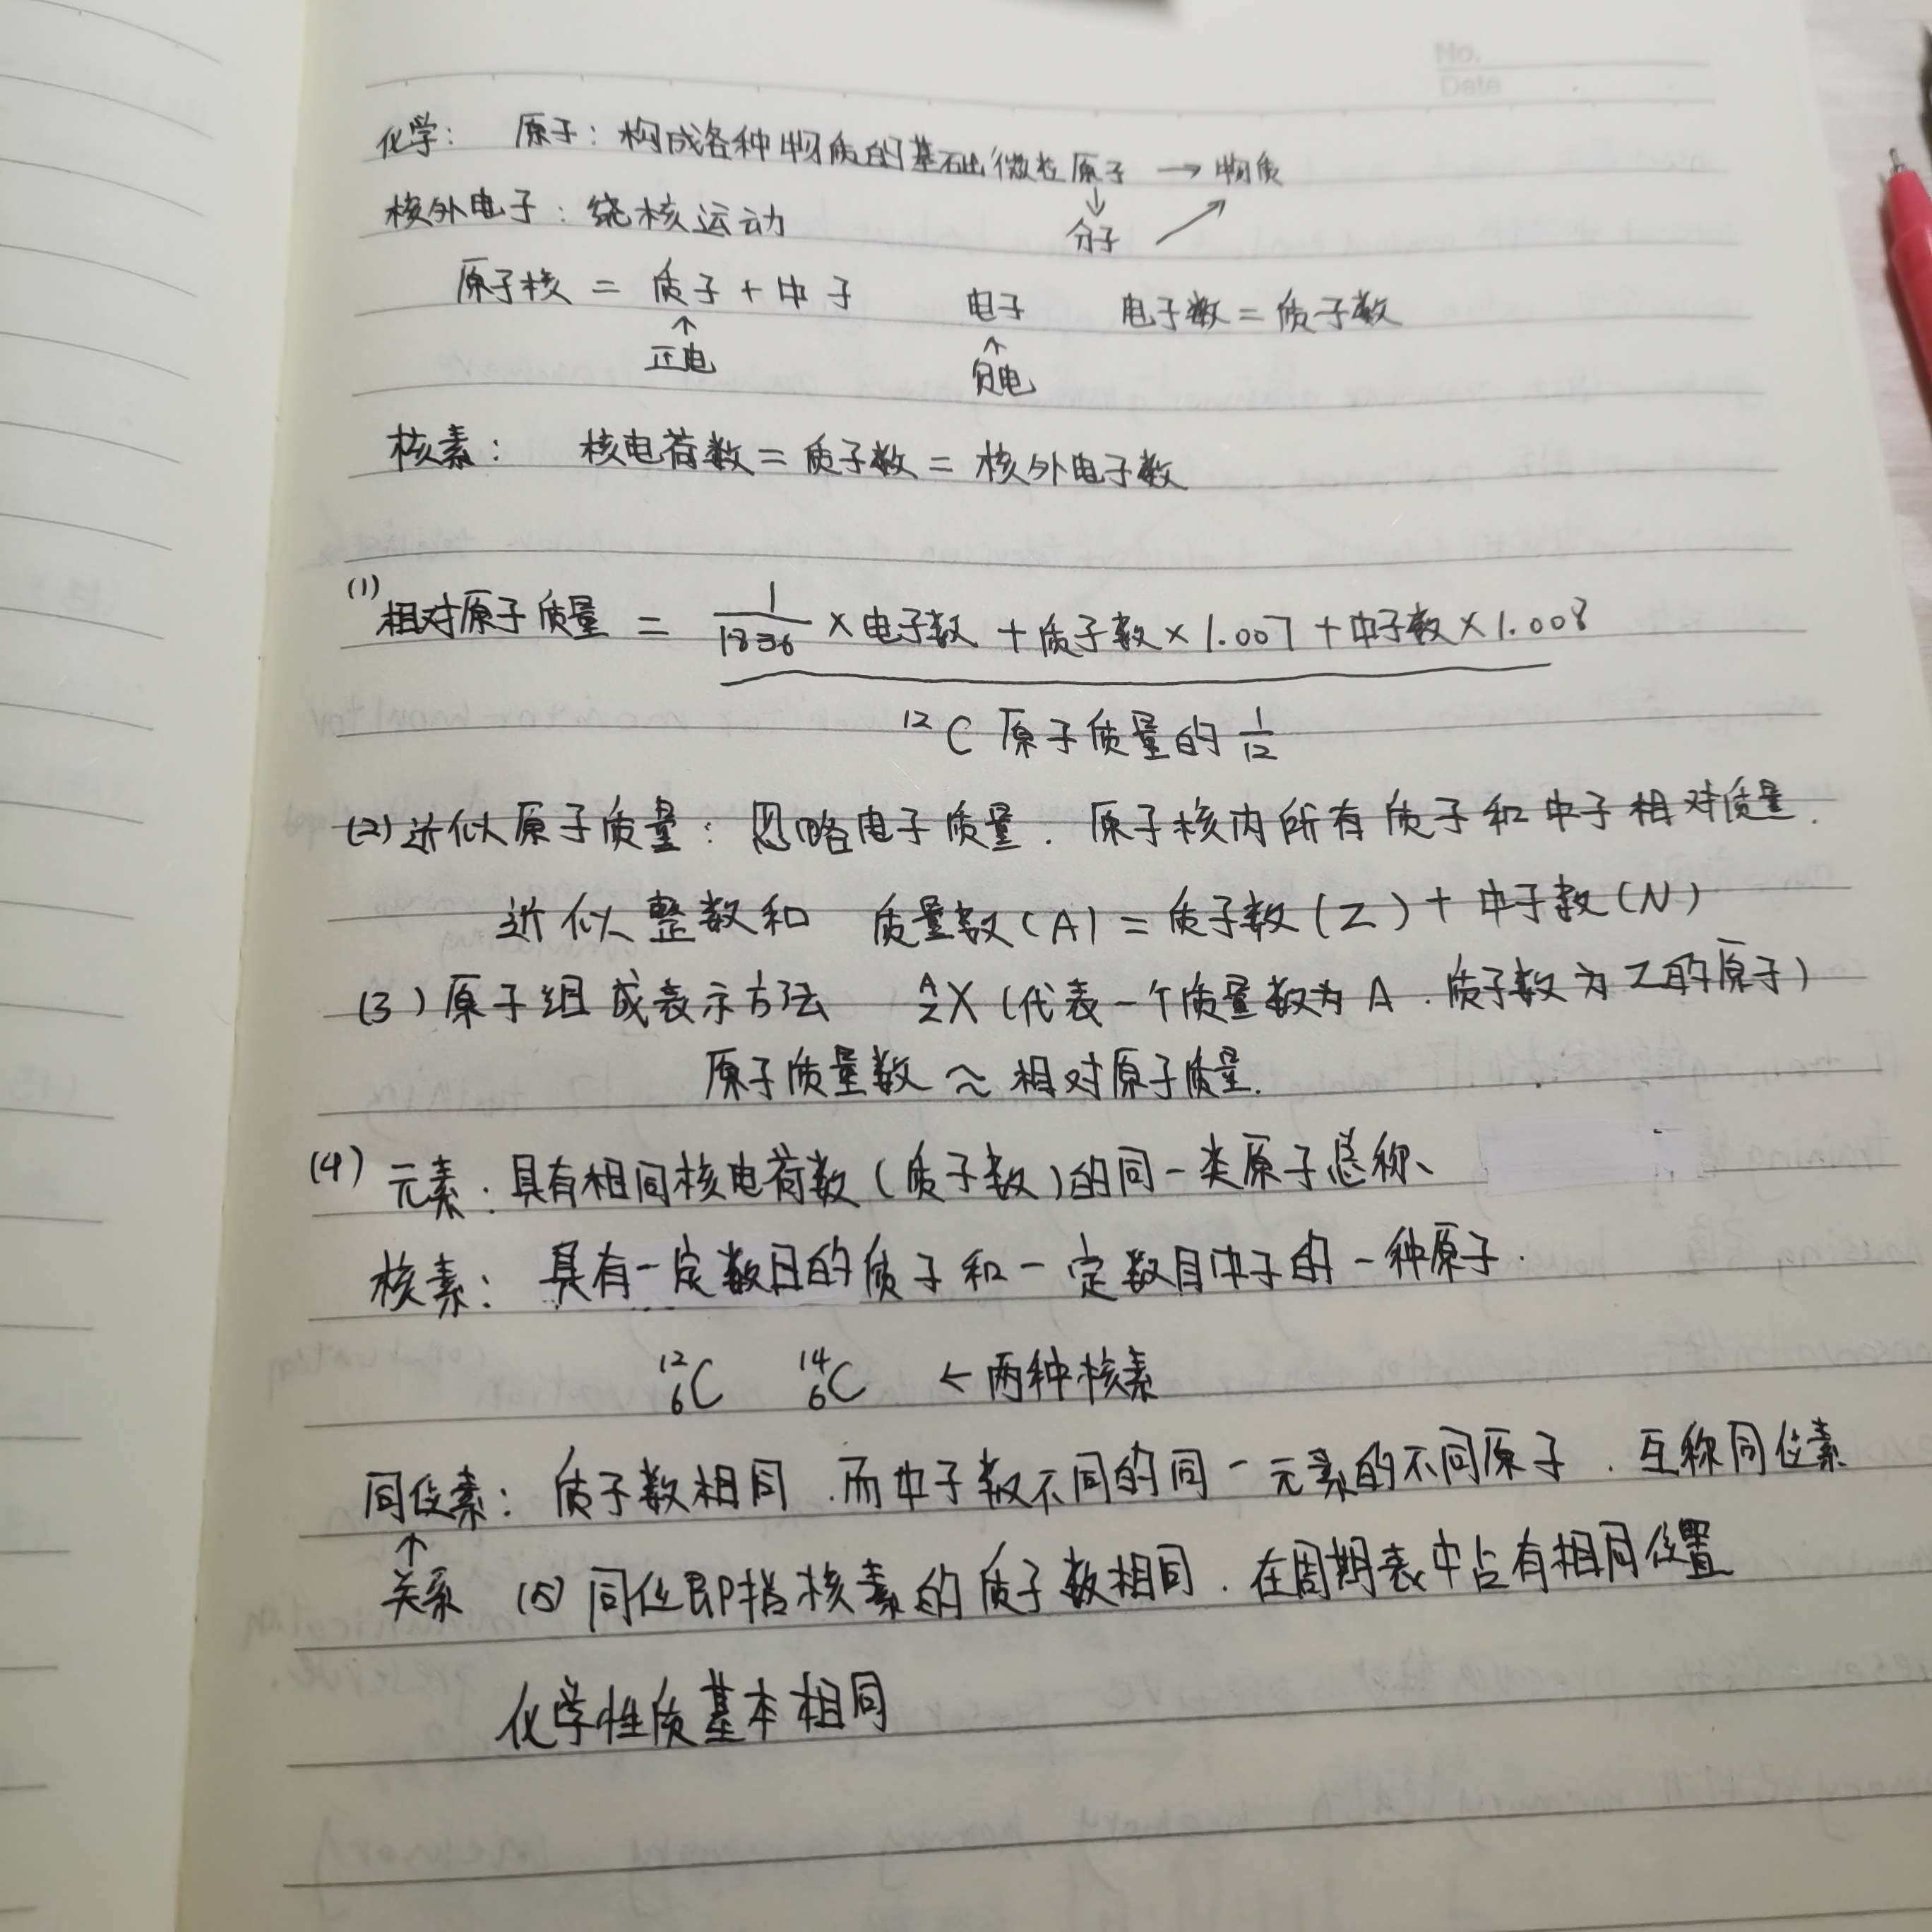 No.
Date
化学： 原子：构成各种物质的基础微粒 原子 → 物质
↓
核外电子：绕核运动 分子 ↗
原子核 = 质子 + 中子 电子 电子数 = 质子数
↑ ↑
正电 负电
核素： 核电荷数 = 质子数 = 核外电子数
(1) 相对原子质量 = 1/1836 × 电子数 + 质子数 × 1.007 + 中子数 × 1.008
¹²C 原子质量的 1/12
(2) 近似原子质量：忽略电子质量．原子核内所有质子和中子相对质量．
近似整数和 质量数(A) = 质子数(Z) + 中子数(N)
(3) 原子组成表示方法 ᴬ_ZX (代表一个质量数为A．质子数为Z的原子)
原子质量数 ≈ 相对原子质量.
(4) 元素：具有相同核电荷数(质子数)的同一类原子总称、
核素：具有一定数目的质子和一定数目中子的一种原子.
¹²₆C ¹⁴₆C ← 两种核素
同位素：质子数相同．而中子数不同的同一元素的不同原子．互称同位素
↑
关系 (5) 同位即指核素的质子数相同．在周期表中占有相同位置
化学性质基本相同